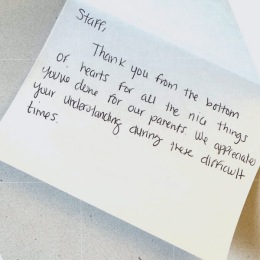 Staff,
Thank you from the bottom
of hearts for all the nice things
you've done for our parents. We appreciate
your understanding during these difficult
times.